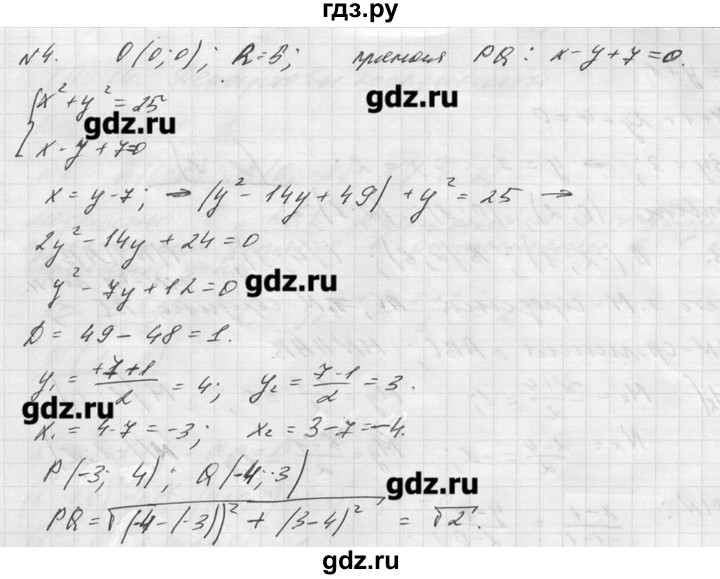 гдз.ру
№4. O(0;0); R=5; прямая PQ: x-y+7=0.
{x²+y²=25
gdz.ru gdz.ru
x-y+7=0
x=y-7; → (y²-14y+49)+y²=25 →
2y²-14y+24=0
y²-7y+12=0 gdz.ru
D=49-48=1.
y₁=(+7+1)/2=4; y₂=(7-1)/2=3.
gdz.ru
x₁=4-7=-3; x₂=3-7=-4.
P(-3; 4); Q(-4; 3)
gdz.ru
PQ=√((-4-(-3))²+(3-4)²)=√2.
gdz.ru